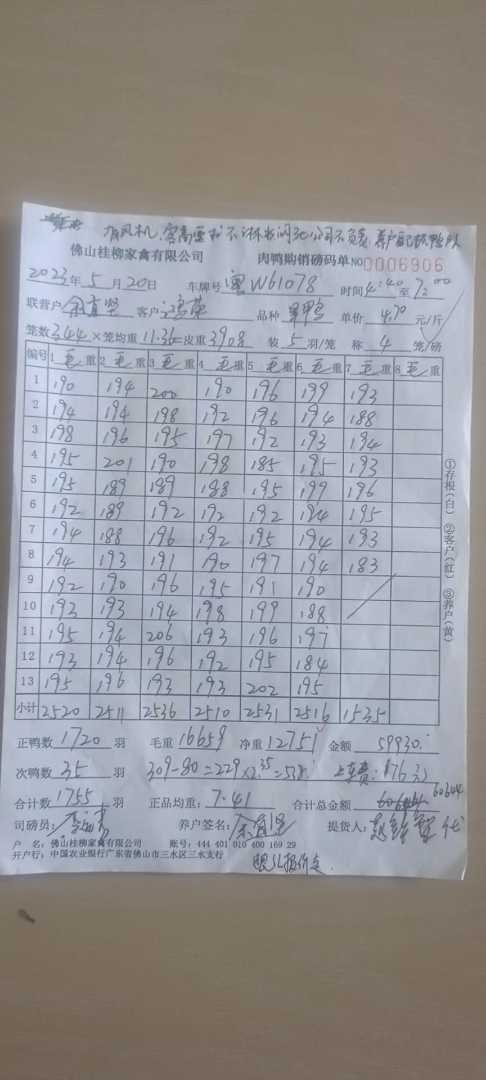 佛山桂柳家禽有限公司 肉鸭购销磅码单 NO 0006906
2023年5月20日 车牌号 粤W61078 时间 4:40 至 7:00
联营户 客户 品种 鸭 单价 4.70 元/斤
笼数 344 × 笼均重 11.36 皮重 3908 装 5 羽/笼 称 4 笼/磅
编号 1 毛重 2 毛重 3 毛重 4 毛重 5 毛重 6 毛重 7 毛重 8 毛重
1 190 194 200 190 196 199 193
2 194 194 198 192 196 194 188
3 198 196 195 197 192 193 194
4 195 201 190 198 185 195 193
5 195 189 189 188 195 199 196
6 192 189 192 192 192 184 195
7 194 188 196 192 195 194 193
8 194 193 191 190 197 194 183
9 192 190 196 195 191 190
10 193 193 194 198 199 188
11 195 194 206 193 196 197
12 193 194 196 192 195 184
13 195 196 193 193 202 195
小计 2520 2511 2536 2510 2531 2516 1535
①存根(白) ②客户(红) ③养户(黄)
正鸭数 1720 羽 毛重 16659 净重 12751 金额 59930.
次鸭数 35 羽 309-80=229×2.35=538 上车费: 176元
合计数 1755 羽 正品均重: 7.41 合计总金额 60304
司磅员: 养户签名: 提货人: 代
户 名: 佛山桂柳家禽有限公司 账号: 444 401 010 400 169 29
开户行: 中国农业银行广东省佛山市三水区三水支行